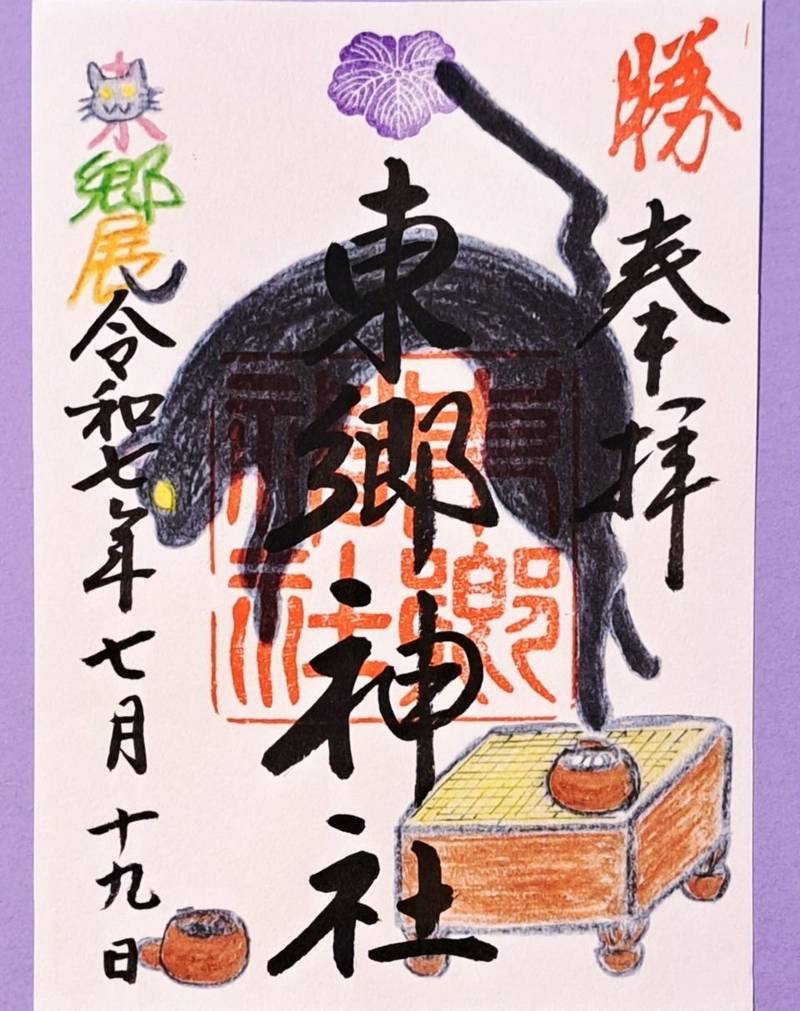 勝
奉拝
東郷神社
東郷神社
東郷展
令和七年七月十九日